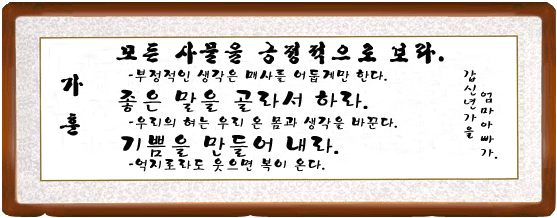 가훈
모든 사물을 긍정적으로 보라.
-부정적인 생각은 매사를 어둡게만 한다.
좋은 말을 골라서 하라.
-우리의 혀는 우리 온 몸과 생각을 바꾼다.
기쁨을 만들어 내라.
-억지로라도 웃으면 복이 온다.
갑신년가을
엄마아빠가.